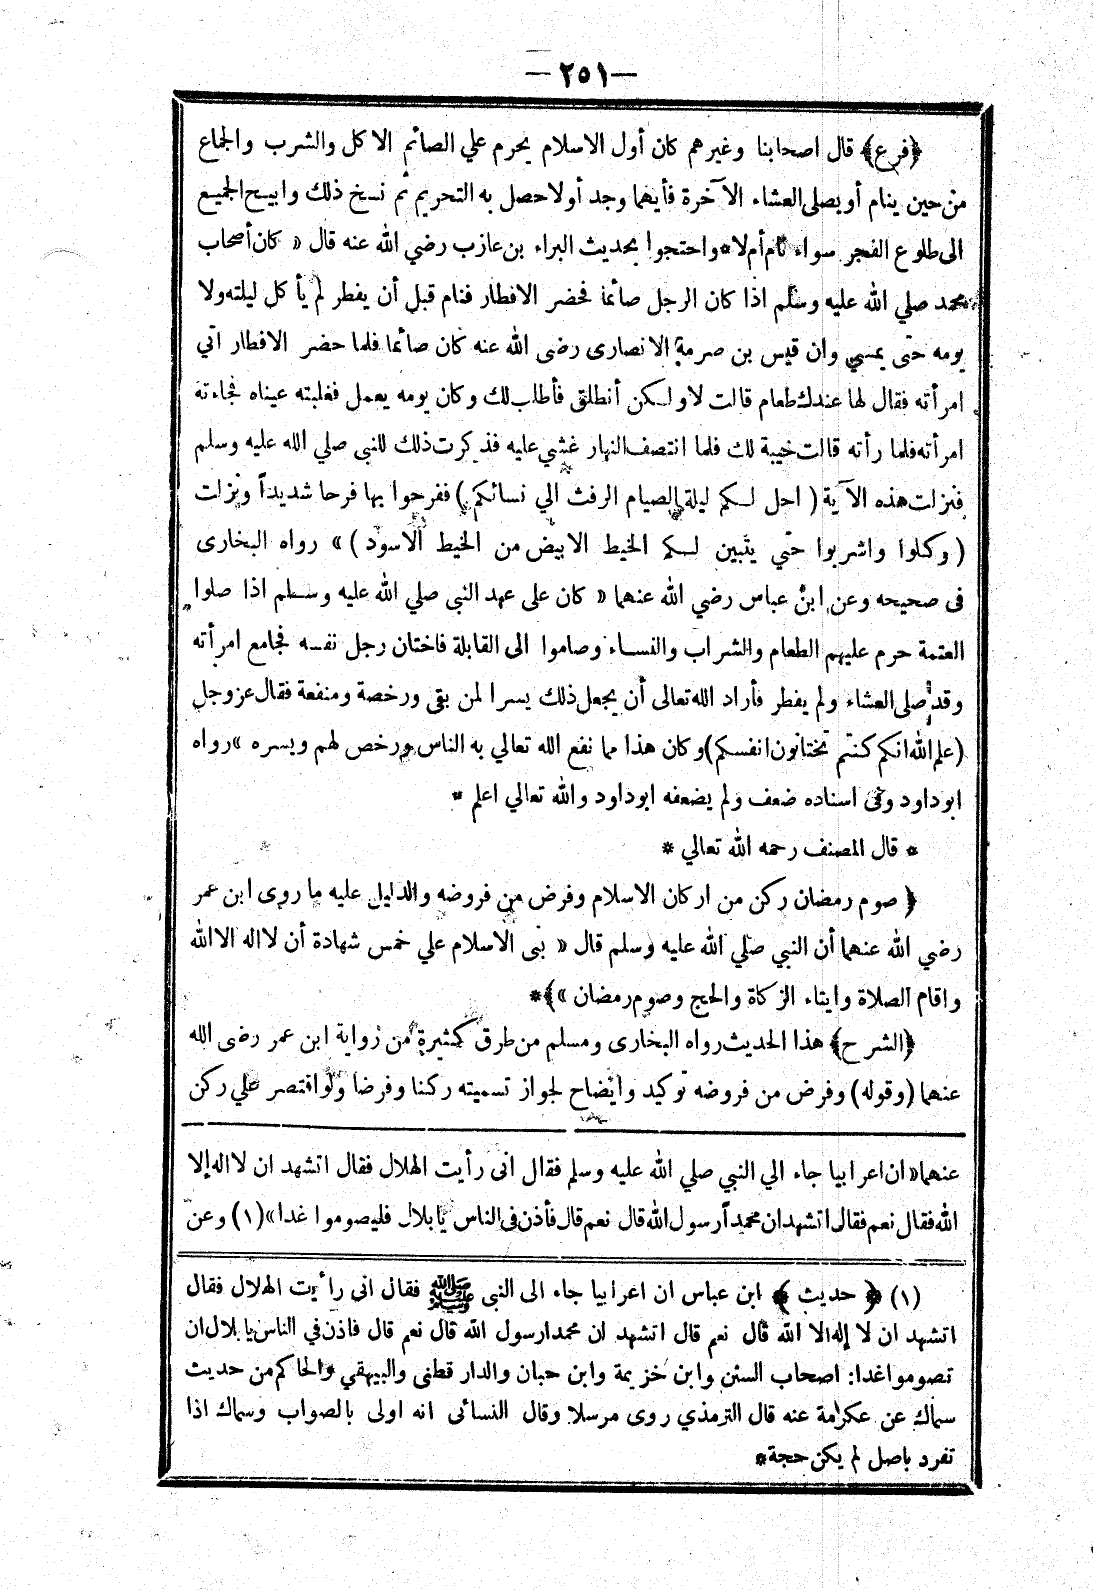 — ٢٥١ —
﴿فرع﴾ قال اصحابنا وغيرهم كان أول الاسلام يحرم علي الصائم الاكل والشرب والجماع
من حين ينام أو يصلى العشاء الآخرة فأيهما وجد أولا حصل به التحريم ثم نسخ ذلك وابيح الجميع
الى طلوع الفجر سواء نام أم لا* واحتجوا بحديث البراء بن عازب رضي الله عنه قال « كان أصحاب
محمد صلي الله عليه وسلم اذا كان الرجل صائما فحضر الافطار فنام قبل أن يفطر لم يأكل ليلته ولا
يومه حتى يمسي وان قيس بن صرمة الانصارى رضى الله عنه كان صائما فلما حضر الافطار اتي
امرأته فقال لها عندك طعام قالت لا ولكن أنطلق فأطلب لك وكان يومه يعمل فغلبته عيناه فجاءته
امرأته فلما رأته قالت خيبة لك فلما انتصف النهار غشي عليه فذكرت ذلك للنبي صلي الله عليه وسلم
فنزلت هذه الآية ( احل لكم ليلة الصيام الرفث الي نسائكم ) ففرحوا بها فرحا شديداً ونزلت
( وكلوا واشربوا حتي يتبين لكم الخيط الابيض من الخيط الاسود ) » رواه البخارى
فى صحيحه وعن ابن عباس رضي الله عنهما « كان على عهد النبى صلي الله عليه وسلم اذا صلوا
العتمة حرم عليهم الطعام والشراب والنساء وصاموا الى القابلة فاختان رجل نفسه فجامع امرأته
وقد صلى العشاء ولم يفطر فأراد الله تعالى أن يجعل ذلك يسرا لمن بقى ورخصة ومنفعة فقال عز وجل
(علم الله انكم كنتم تختانون انفسكم) وكان هذا مما نفع الله تعالي به الناس ورخص لهم ويسره » رواه
ابو داود وفى اسناده ضعف ولم يضعفه ابو داود والله تعالي اعلم *
* قال المصنف رحمه الله تعالي *
﴿ صوم رمضان ركن من اركان الاسلام وفرض من فروضه والدليل عليه ما روى ابن عمر
رضي الله عنهما أن النبي صلي الله عليه وسلم قال « بنى الاسلام علي خمس شهادة أن لا اله الا الله
واقام الصلاة وايتاء الزكاة والحج وصوم رمضان » ﴾*
﴿الشرح﴾ هذا الحديث رواه البخارى ومسلم من طرق كثيرة من رواية ابن عمر رضى الله
عنهما (وقوله) وفرض من فروضه توكيد وايضاح لجواز تسميته ركنا وفرضا ولو اقتصر علي ركن
عنهما « ان اعرابيا جاء الي النبي صلي الله عليه وسلم فقال انى رأيت الهلال فقال اتشهد ان لا اله إلا
الله فقال نعم فقال اتشهد ان محمداً رسول الله قال نعم قال فأذن فى الناس يا بلال فليصوموا غدا » (١) وعن
(١) ﴿ حديث ﴾ ابن عباس ان اعرابيا جاء الى النبى ﷺ فقال انى رأيت الهلال فقال
اتشهد ان لا إله الا الله قال نعم قال اتشهد ان محمدا رسول الله قال نعم قال فاذن في الناس يا بلال ان
تصوموا غدا: اصحاب السنن وابن خزيمة وابن حبان والدار قطنى والبيهقي والحاكم من حديث
سماك عن عكرمة عنه قال الترمذي روى مرسلا وقال النسائى انه اولى بالصواب وسماك اذا
تفرد باصل لم يكن حجة*